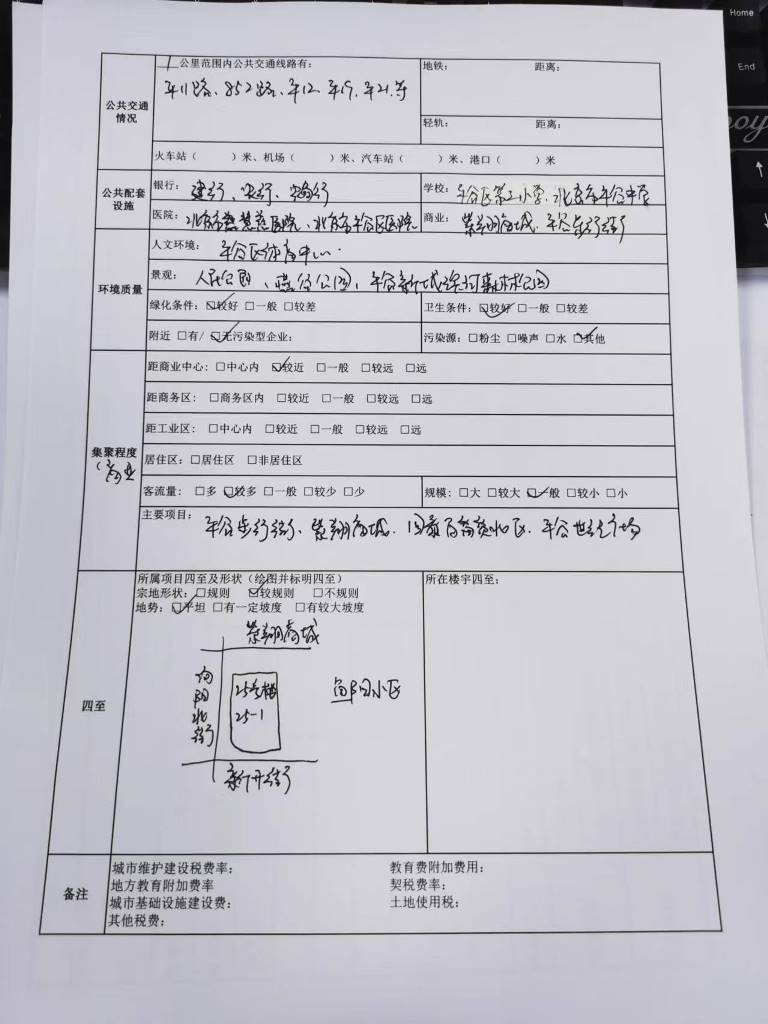 Home
End
公共交通情况
1 公里范围内公共交通线路有：
平11路、852路、平12、平19、平21、等
地铁： 距离：
轻轨： 距离：
火车站（ ）米、机场（ ）米、汽车站（ ）米、港口（ ）米
公共配套设施
银行：建行、农行、农商行
学校：平谷区第三小学、北京市平谷中学
医院：北京市慧慈医院、北京市平谷区医院
商业：紫翔商城、平谷步行街
环境质量
人文环境：平谷区体育中心
景观：人民公园、燕谷公园、平谷新城滨河森林公园
绿化条件：☑较好 □一般 □较差
卫生条件：☑较好 □一般 □较差
附近 □有/ ☑无污染型企业：
污染源：□粉尘 □噪声 □水 ☑其他
集聚程度
（商业
距商业中心：□中心内 ☑较近 □一般 □较远 □远
距商务区：□商务区内 □较近 □一般 □较远 □远
距工业区：□中心内 □较近 □一般 □较远 □远
居住区：□居住区 □非居住区
客流量：□多 ☑较多 □一般 □较少 □少
规模：□大 □较大 ☑一般 □较小 □小
主要项目：平谷步行街、紫翔商城、国泰百货 平谷世纪广场
四至
所属项目四至及形状（绘图并标明四至）
宗地形状：□规则 ☑较规则 □不规则
地势：☑平坦 □有一定坡度 □有较大坡度
所在楼宇四至：
紫翔商城
向阳北街
25号楼
25-1
向阳小区
新开街
备注
城市维护建设税费率：
教育费附加费用：
地方教育附加费率
契税费率：
城市基础设施建设费：
土地使用税：
其他税费：